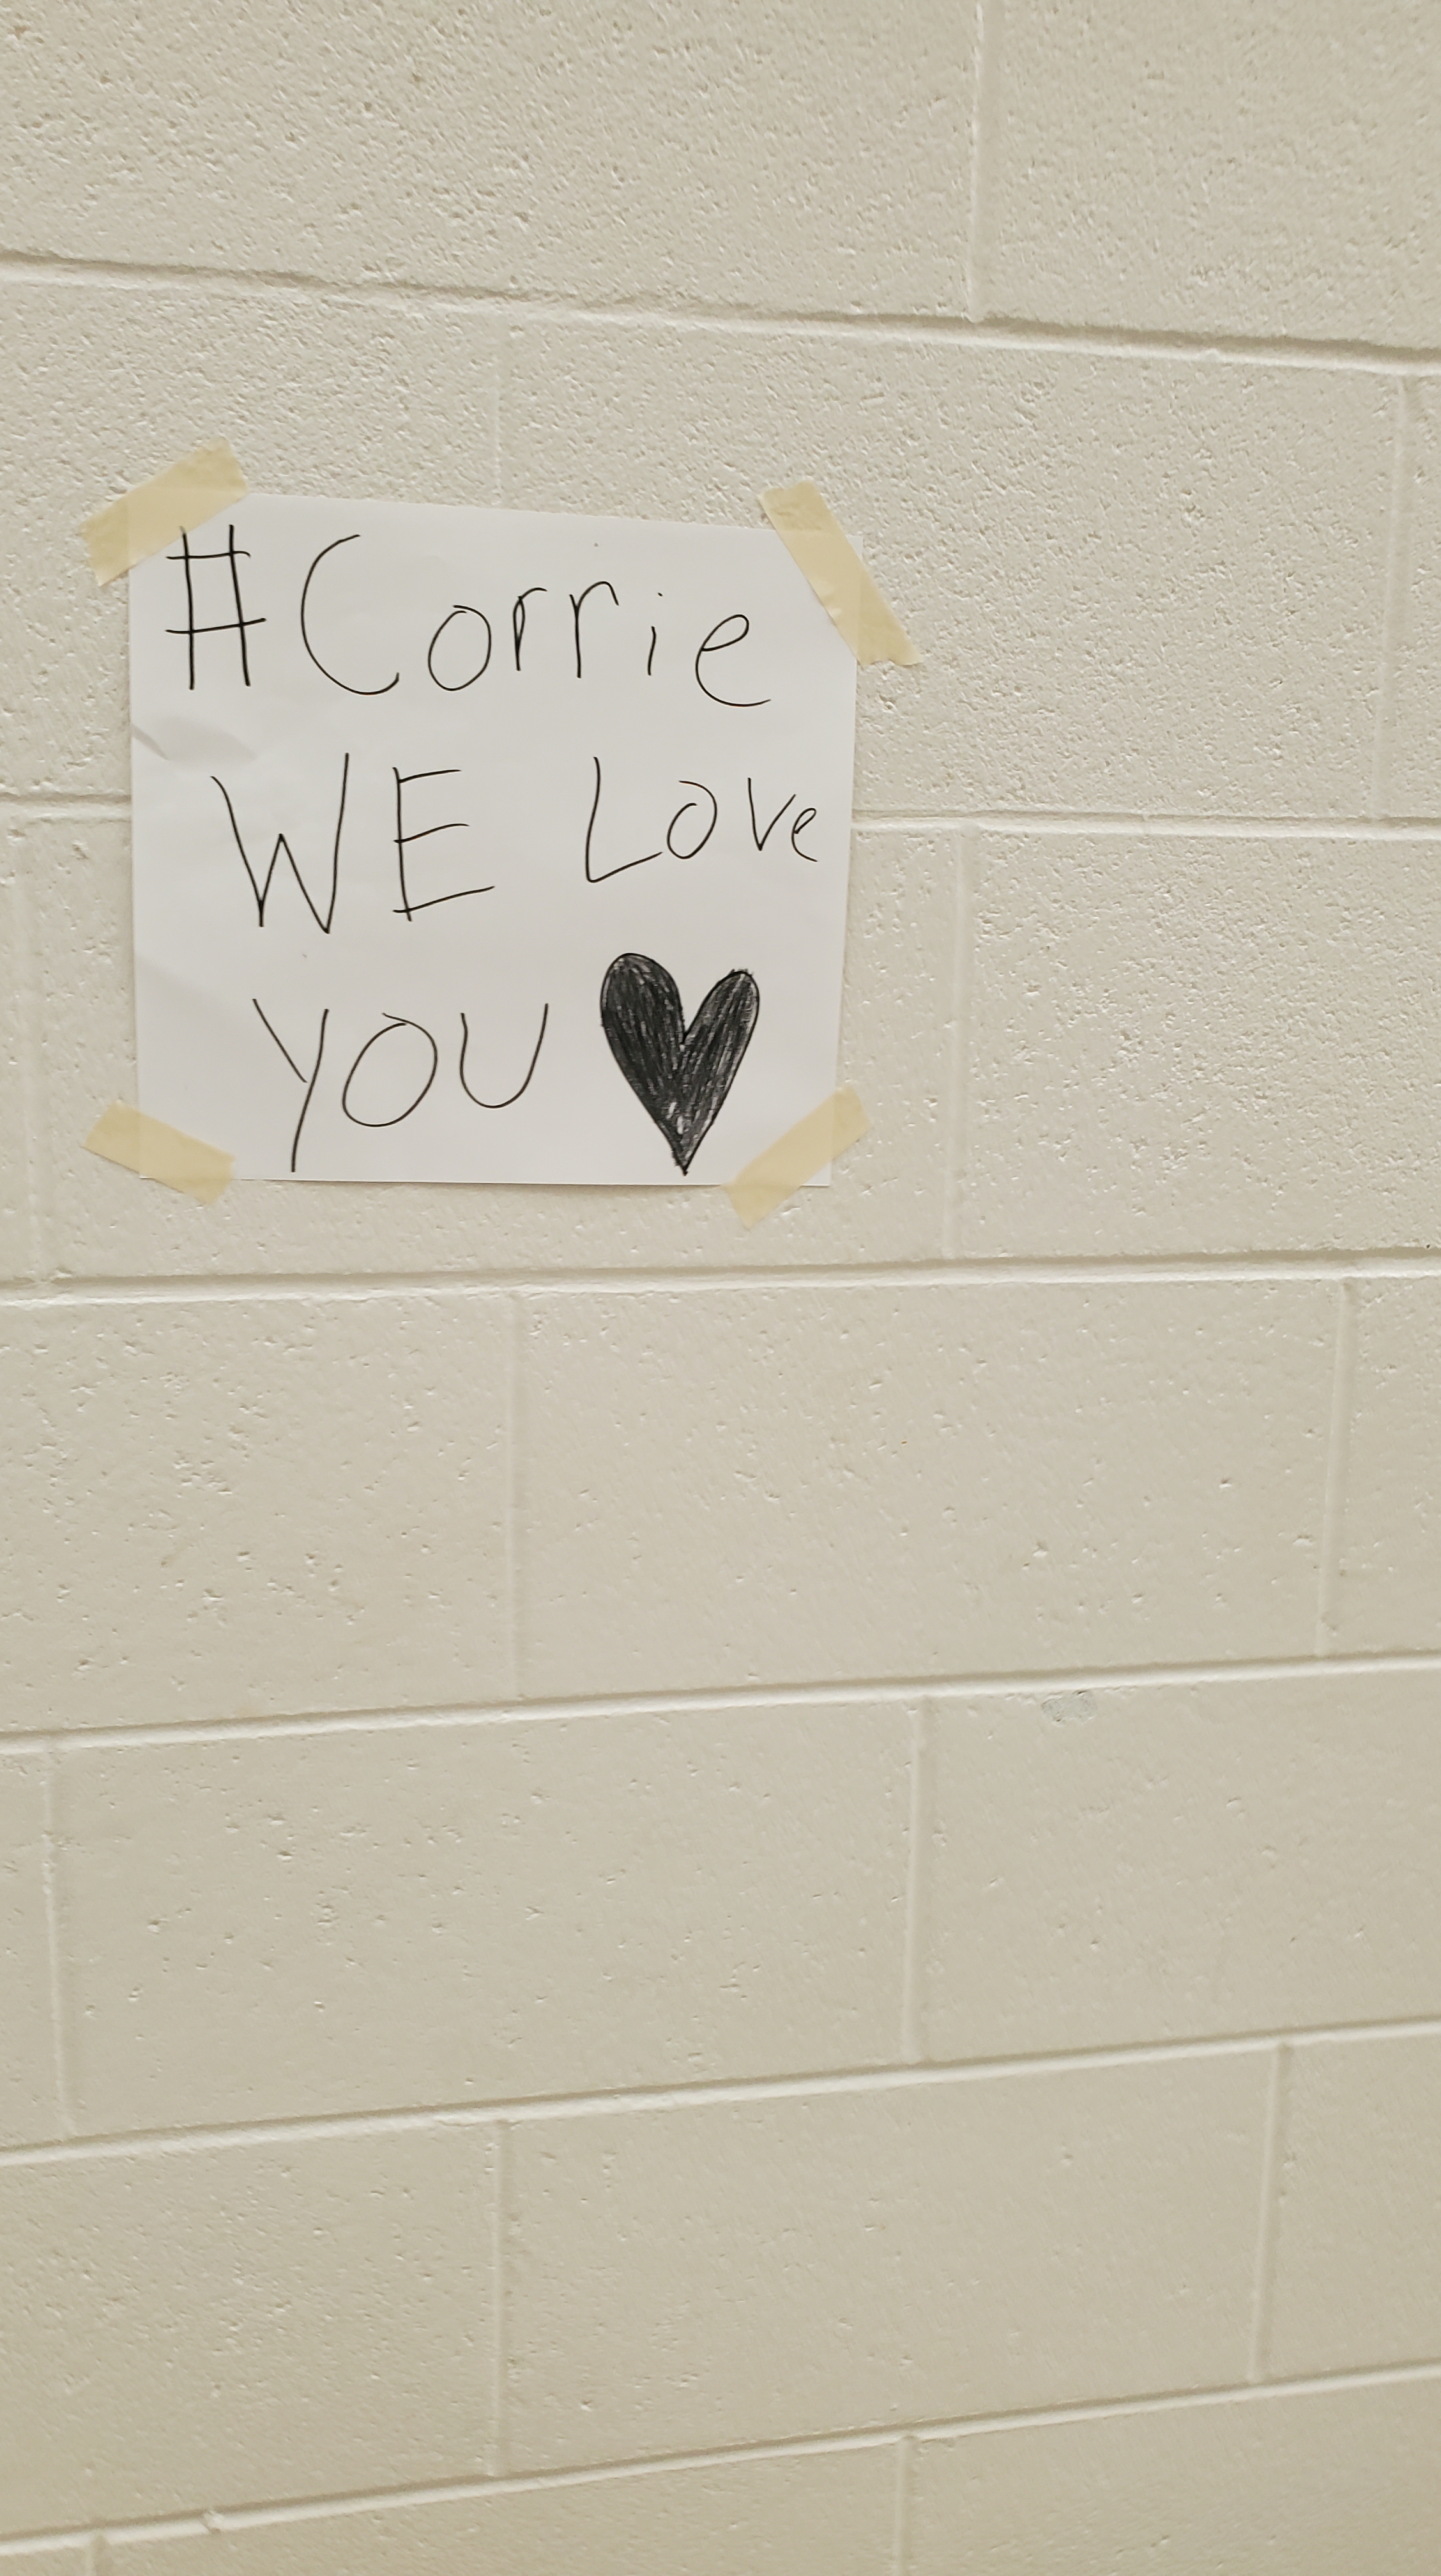 #Corrie
WE Love
YOU